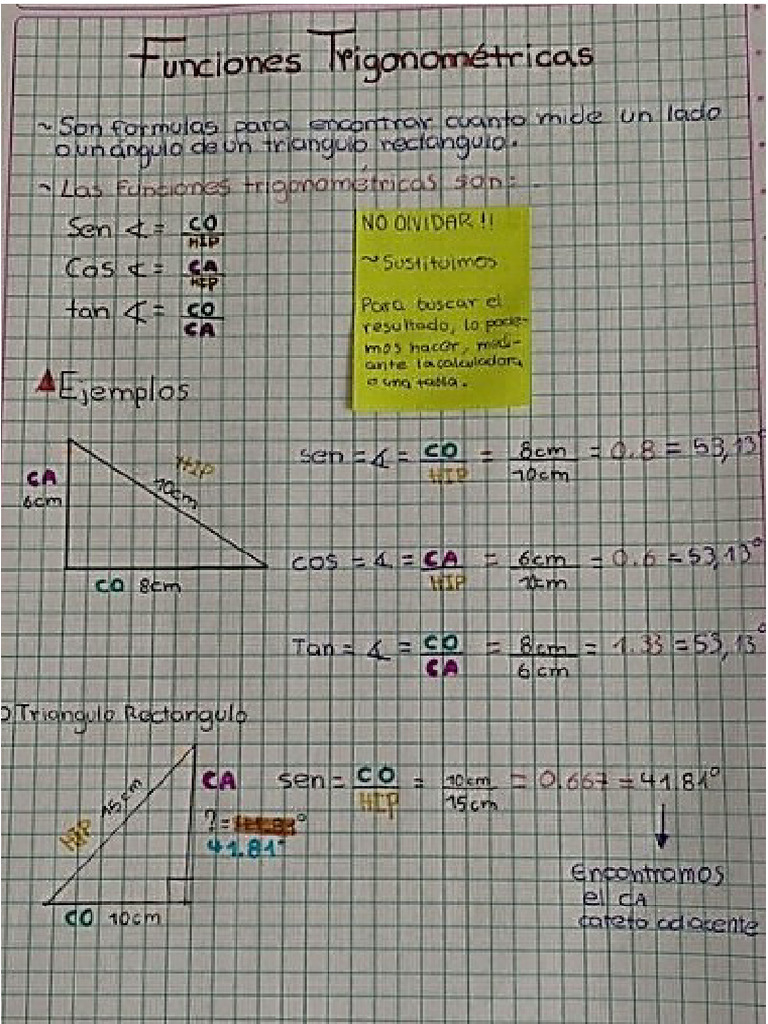 Funciones Trigonométricas
~ Son formulas para encontrar cuanto mide un lado
o un ángulo de un triangulo rectangulo.
~ Las Funciones trigonométricas son:
Sen ∢ = CO/HIP
Cos ∢ = CA/HIP
tan ∢ = CO/CA
NO OLVIDAR!!
~ Sustituimos
Para buscar el
resultado, lo pode-
mos hacer, medi-
ante la calculadora
o una tabla.
Ejemplos
CA
6cm
HIP
10cm
CO 8cm
sen = ∢ = CO/HIP = 8cm/10cm = 0.8 = 53,13°
cos = ∢ = CA/HIP = 6cm/10cm = 0.6 = 53,13°
Tan = ∢ = CO/CA = 8cm/6cm = 1.33 = 53,13°
Triangulo Rectangulo
HIP 15cm
CA
? = °
41.81°
CO 10cm
sen = CO/HIP = 10cm/15cm = 0.667 = 41.81°
Encontramos
el CA
cateto adacente